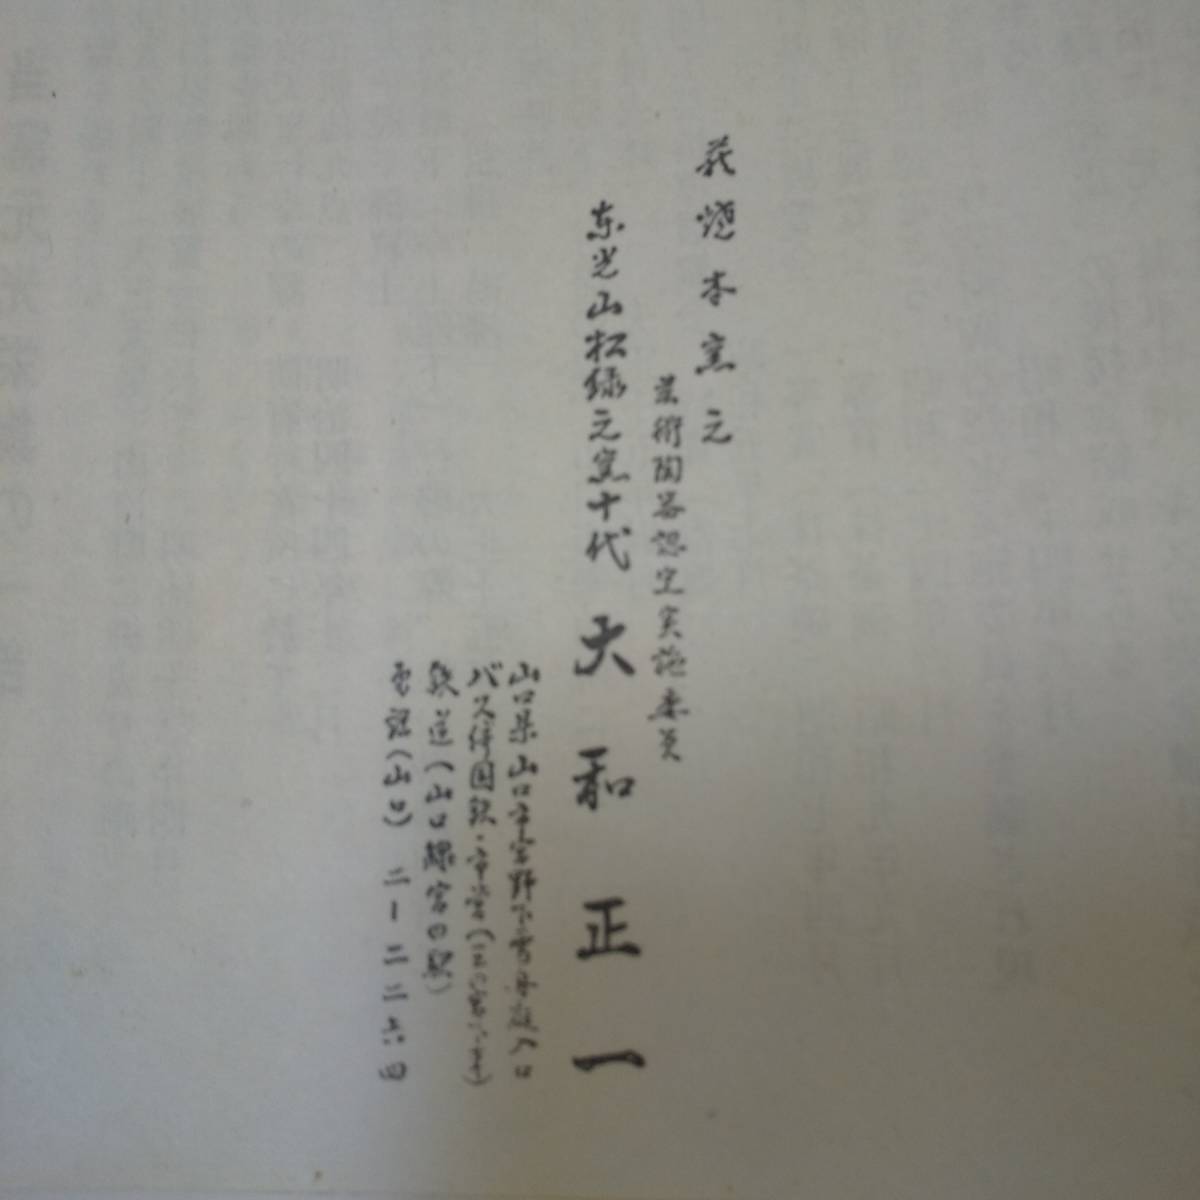 萩焼本窯元
芸術陶器認定実施委員
东光山松緑之窯十代 大和正一
山口県山口市宮野下雪舟庭入口
バス停国鉄・市営
鉄道(山口線宮の駅)
電話(山口) 二ー二二六四